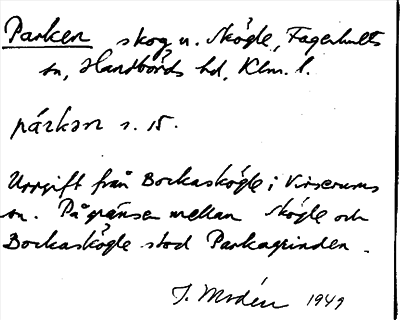 Parken skog n. Skögle, Fagerhults
sn, Handbörds hd, Klm. l.
párkən s. 15.
Uppgift från Bockaskögle i Virserums
sn. På gränsen mellan Skögle och
Bockaskögle stod Parkagrinden.
J. Modén 1949